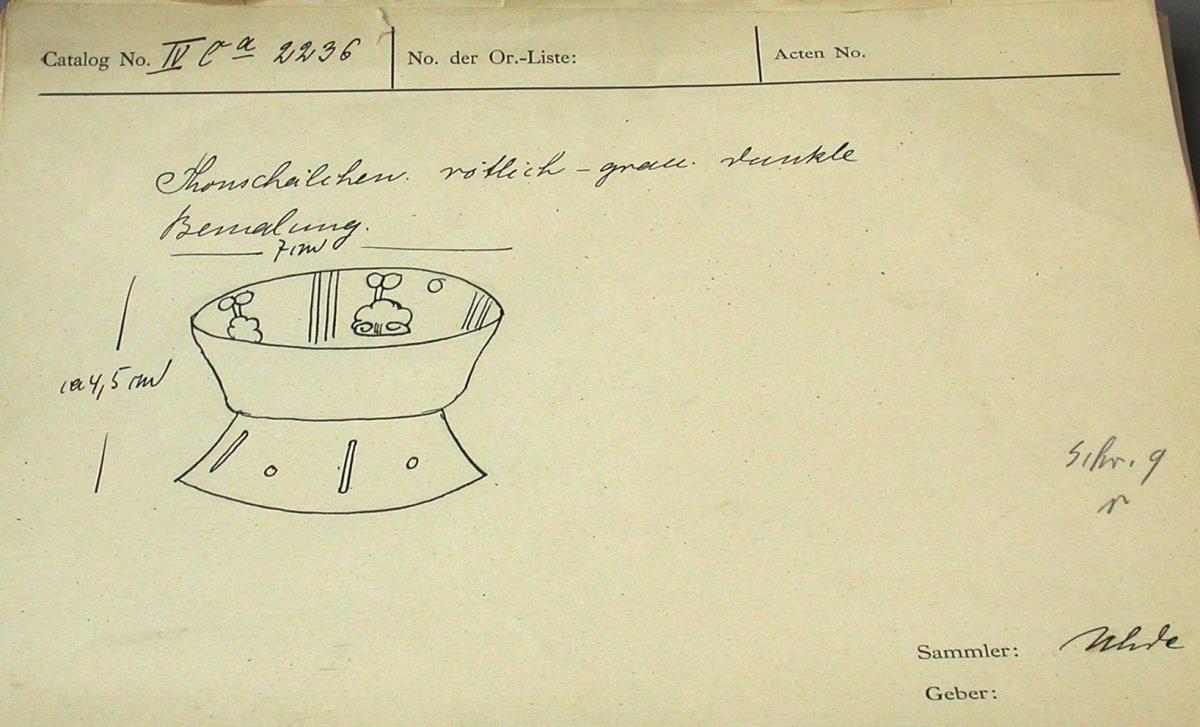 Catalog No. IV Ca 2236 No. der Or.-Liste: Acten No.
Thonschälchen. rötlich - grau. dunkle
Bemalung.
7 cm
ca 4,5 cm
Schr. 9
Sammler: Uhde
Geber: